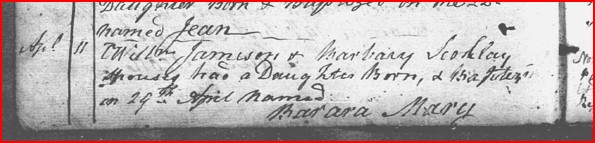 Daughter Born & Baptized on the 22
named Jean
Apl 11 Willm Jamison & Barbary Scohlay
Housay had a Daughter Born, & Baptiz'd
on 29th April Named
Barara Mary